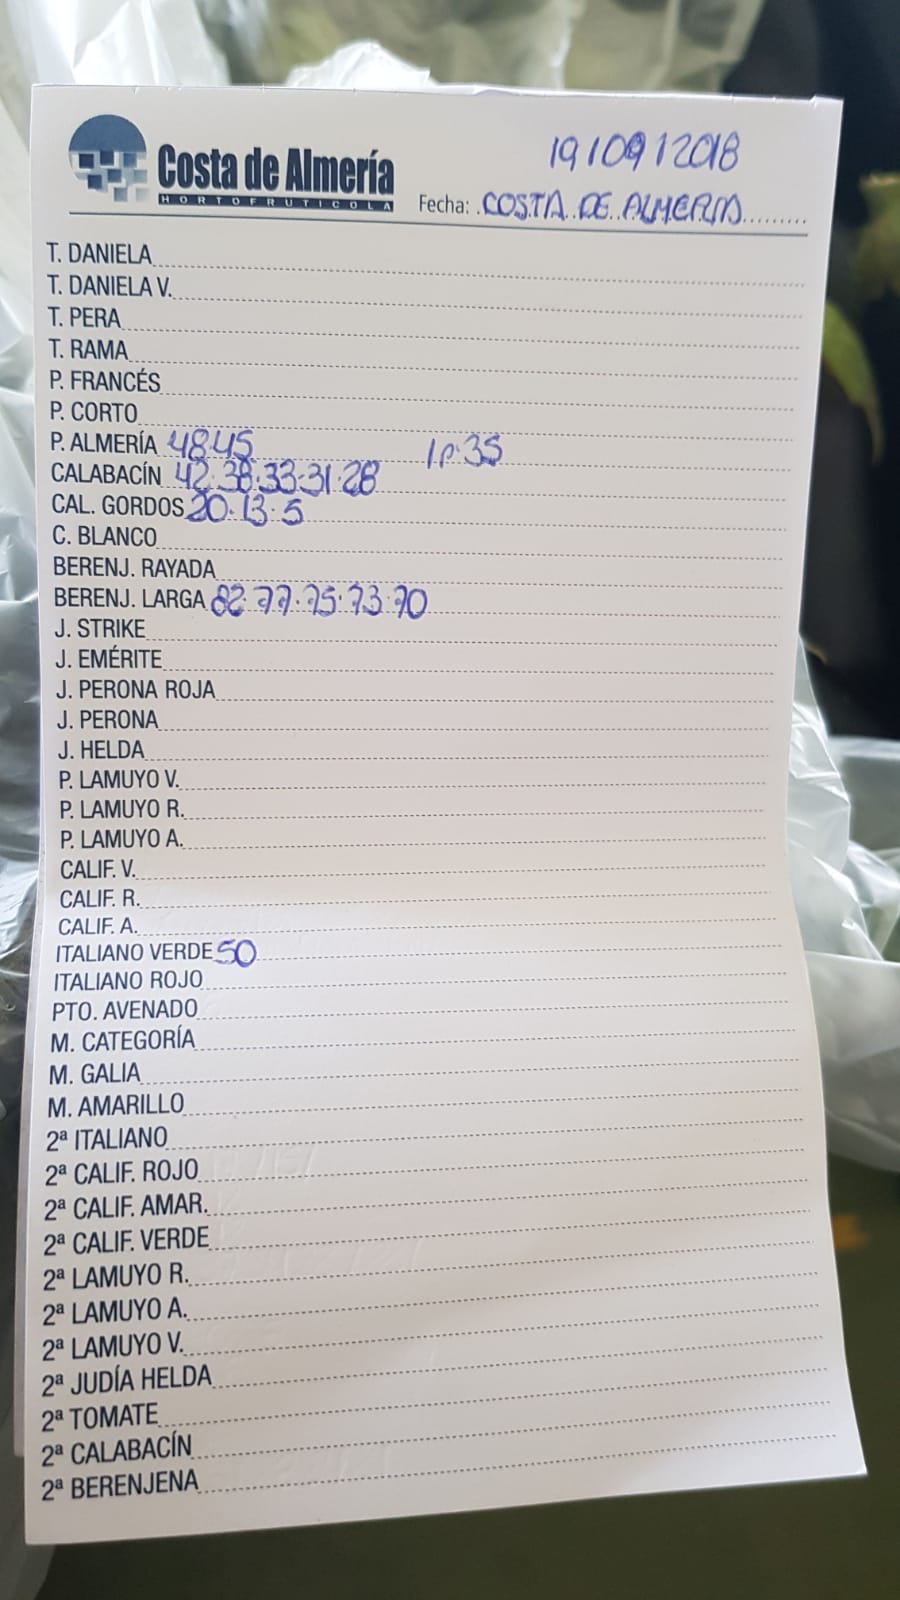 Costa de Almería
HORTOFRUTICOLA
19/09/2018
Fecha: COSTA DE ALMERIA
T. DANIELA
T. DANIELA V.
T. PERA
T. RAMA
P. FRANCÉS
P. CORTO
P. ALMERÍA 48·45 LP·35
CALABACÍN 42·38·33·31·28
CAL. GORDOS 20·13·5
C. BLANCO
BERENJ. RAYADA
BERENJ. LARGA 82·77·75·73·70
J. STRIKE
J. EMÉRITE
J. PERONA ROJA
J. PERONA
J. HELDA
P. LAMUYO V.
P. LAMUYO R.
P. LAMUYO A.
CALIF. V.
CALIF. R.
CALIF. A.
ITALIANO VERDE 50
ITALIANO ROJO
PTO. AVENADO
M. CATEGORÍA
M. GALIA
M. AMARILLO
2ª ITALIANO
2ª CALIF. ROJO
2ª CALIF. AMAR.
2ª CALIF. VERDE
2ª LAMUYO R.
2ª LAMUYO A.
2ª LAMUYO V.
2ª JUDÍA HELDA
2ª TOMATE
2ª CALABACÍN
2ª BERENJENA